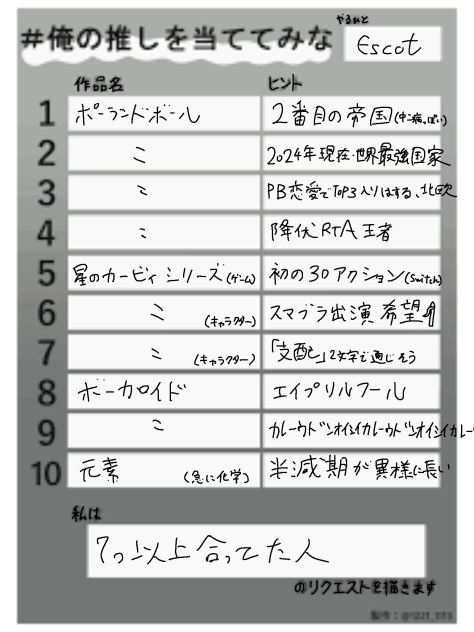 やるひと
#俺の推しを当ててみな
Escot
作品名 ヒント
1 ポーランドボール 2番目の帝国(中二病っぽい)
2 〃 2024年現在世界最強国家
3 〃 PB恋愛でTOP3入りはする、北欧
4 〃 降伏RTA王者
5 星のカービィシリーズ(ゲーム) 初の3Dアクション(Switch)
6 〃 (キャラクター) スマブラ出演希望
7 〃 (キャラクター) 「支配」2文字で通じそう
8 ボーカロイド エイプリルフール
9 〃 カレーウドンオイシイカレーウドンオイシイカレー
10 元素 (急に化学) 半減期が異様に長い
私は
7つ以上合ってた人
のリクエストを描きます
製作:@1221_1113